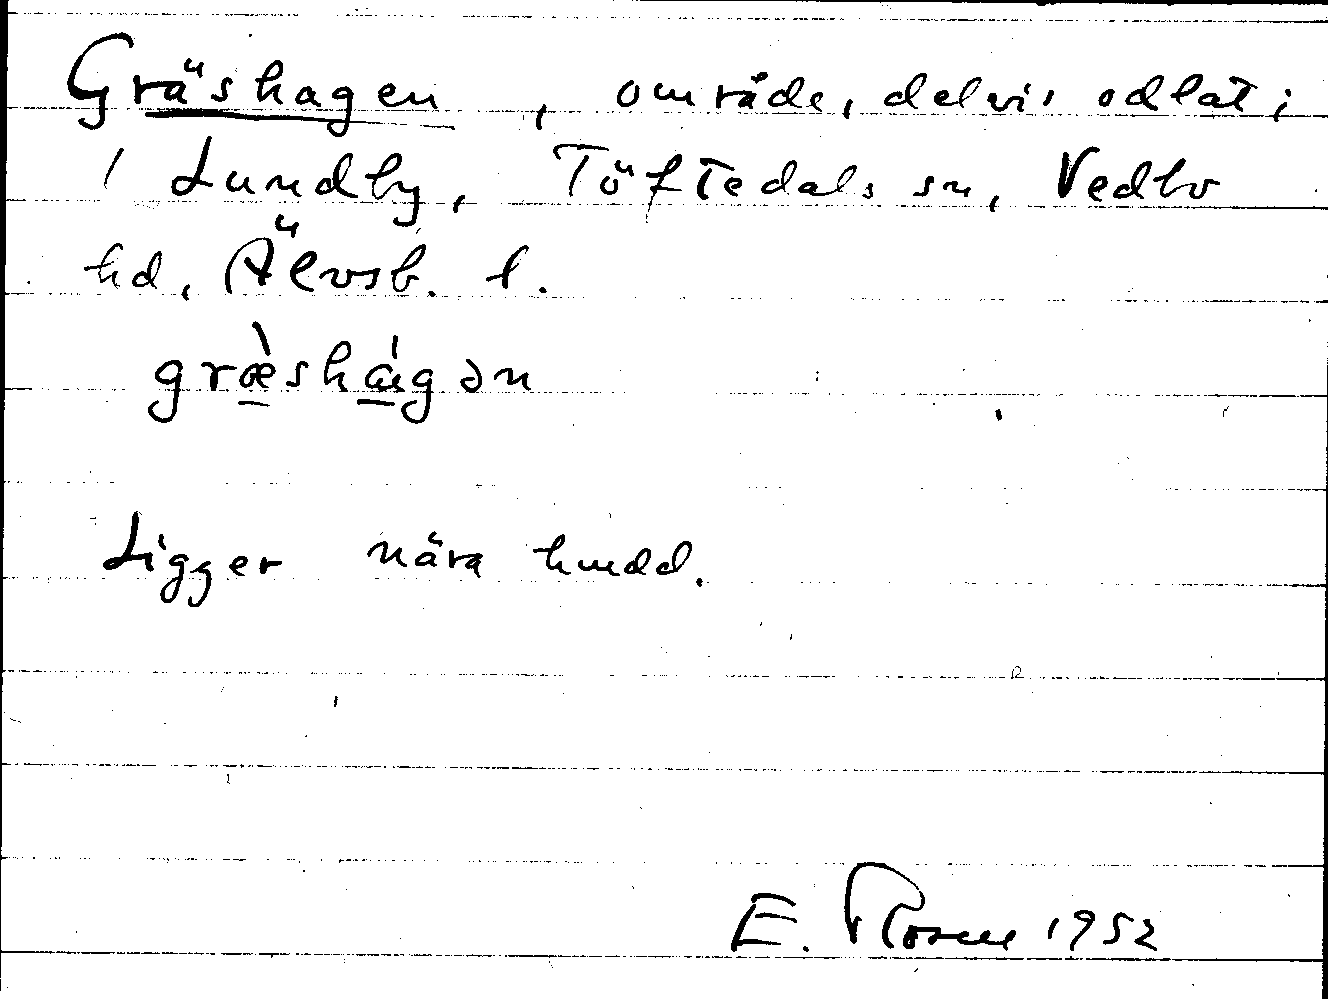 Gräshagen, område, delvis odlat i
1 Lundby, Töftedals sn, Vedbo
hd, Älvsb. l.
græ̀shágən
Ligger nära huvdd.
E. Rosell 1952